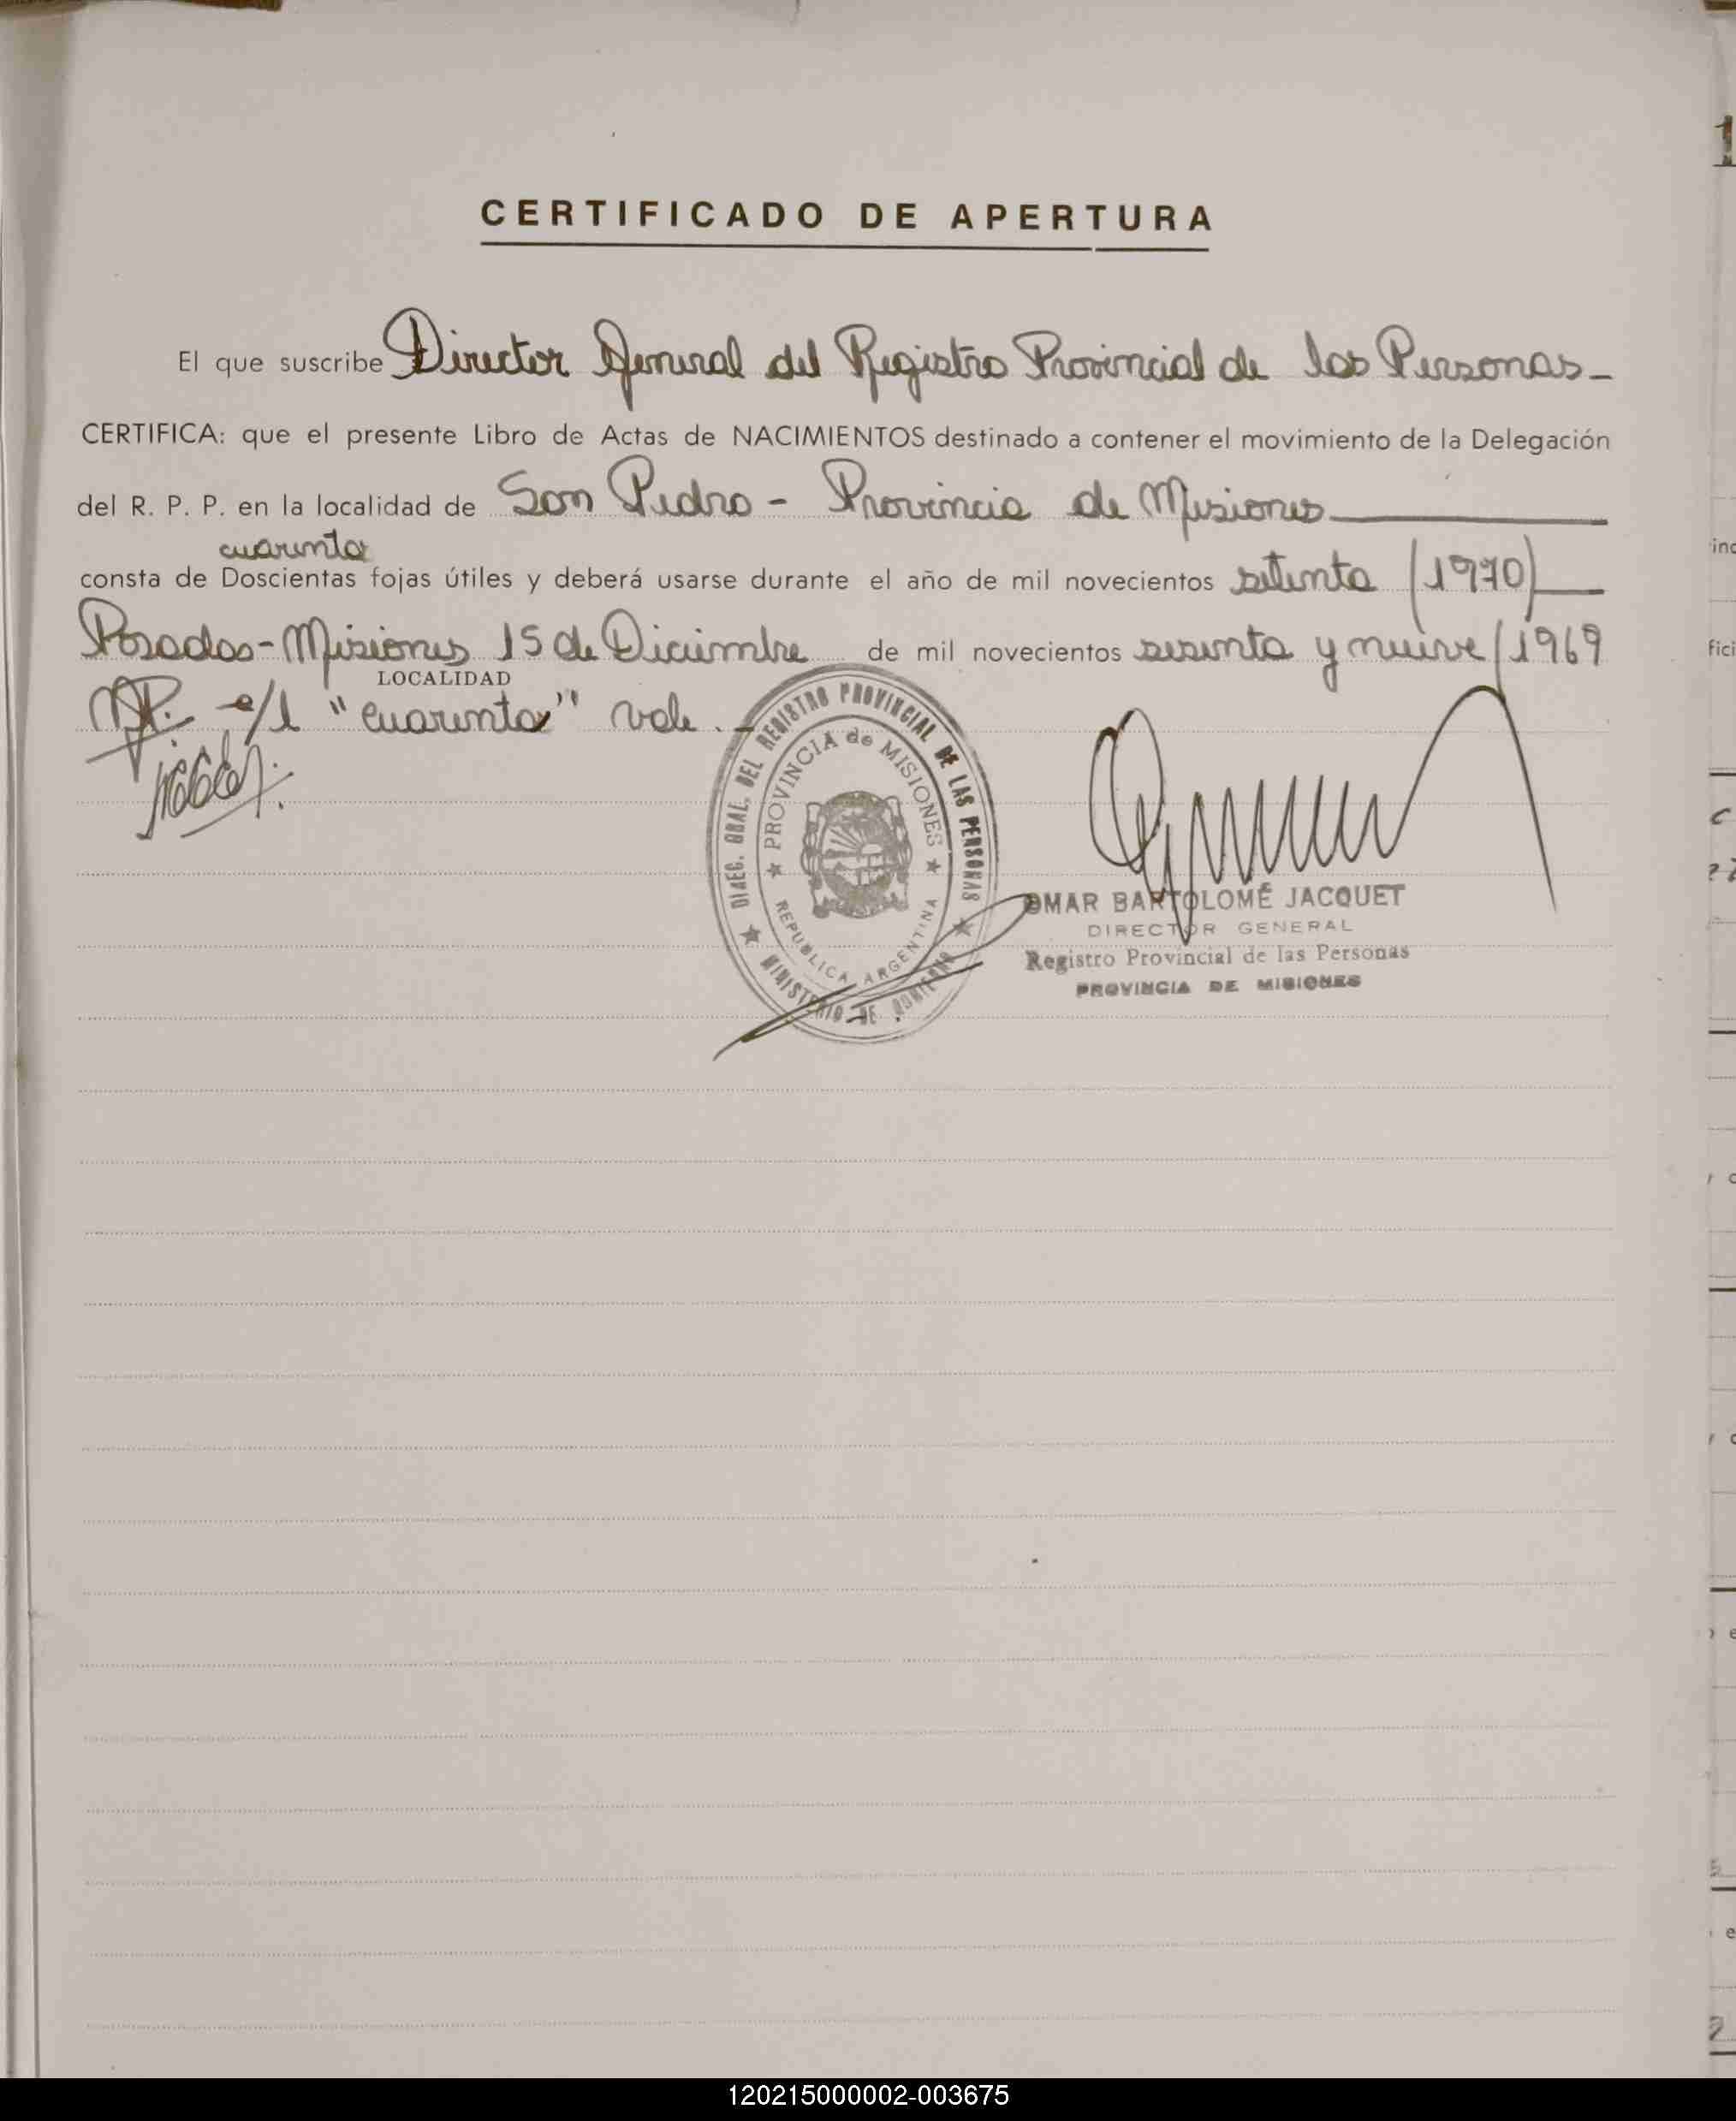 CERTIFICADO DE APERTURA
El que suscribe Director General del Registro Provincial de las Personas-
CERTIFICA: que el presente Libro de Actas de NACIMIENTOS destinado a contener el movimiento de la Delegación
del R. P. P. en la localidad de San Pedro - Provincia de Misiones
cuarenta
consta de Doscientas fojas útiles y deberá usarse durante el año de mil novecientos setenta (1970)
Posadas-Misiones 15 de Diciembre de mil novecientos sesenta y nueve/1969
LOCALIDAD
e/l "cuarenta" vale.-
DIREC. GRAL. DEL REGISTRO PROVINCIAL DE LAS PERSONAS
PROVINCIA de MISIONES
REPUBLICA ARGENTINA
MINISTERIO DE GOBIERNO
OMAR BARTOLOMÉ JACQUET
DIRECTOR GENERAL
Registro Provincial de las Personas
PROVINCIA DE MISIONES
120215000002-003675